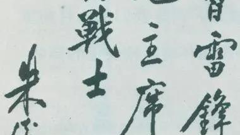 雷鋒
主席
戰士
朱